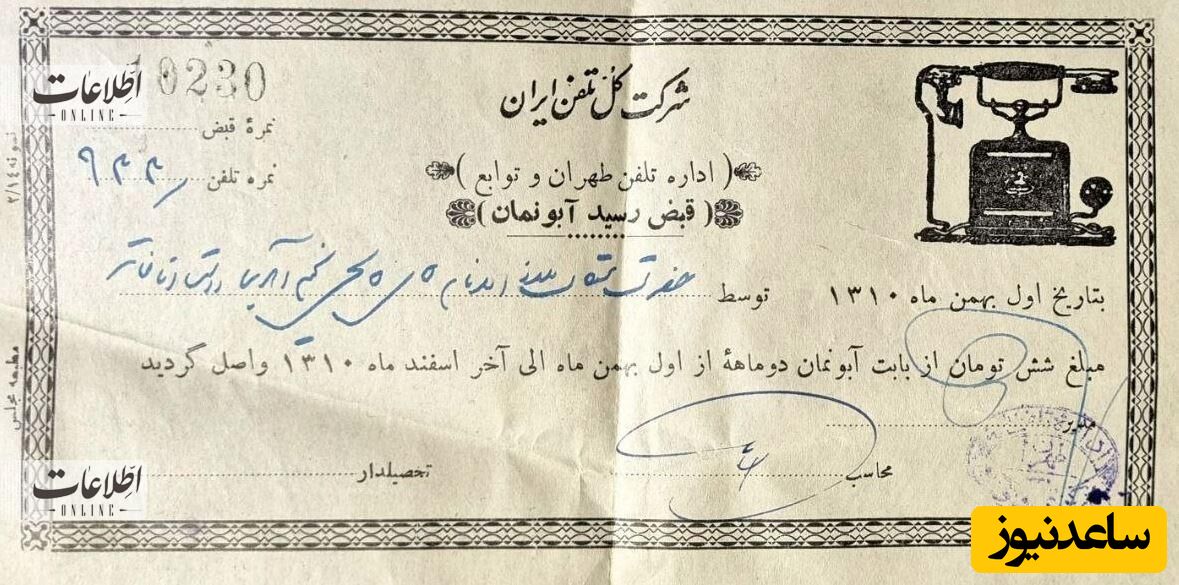 شرکت کل تلفن ایران
( اداره تلفن طهران و توابع )
( قبض رسید آبونمان )
10230
نمرهٔ قبض
نمره تلفن ۹۳۳
بتاریخ اول بهمن ماه ۱۳۱۰ توسط حضرت
مبلغ شش تومان از بابت آبونمان دوماههٔ از اول بهمن ماه الی آخر اسفند ماه ۱۳۱۰ واصل گردید
مدیر
محاسب
تحصیلدار
نمونه ۲/۱۴
مطبعه مجلس
اطلاعات
ONLINE
اطلاعات
ONLINE
ساعدنیوز